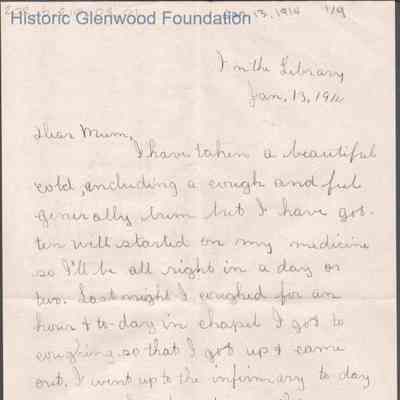 Historic Glenwood Foundation
Jan. 13, 1914
In the Library
Jan. 13, 191
Dear Mum,
I have taken a beautiful
cold, including a cough and feel
generally bum but I have got-
ten well started on my medicine
so I'll be all right in a day or
two. Last night I coughed for an
hour & to-day in chapel I got to
coughing so that I got up & came
out. I went up to the infirmary to day